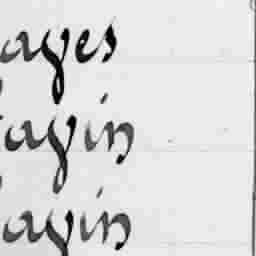 ages
agin
agin